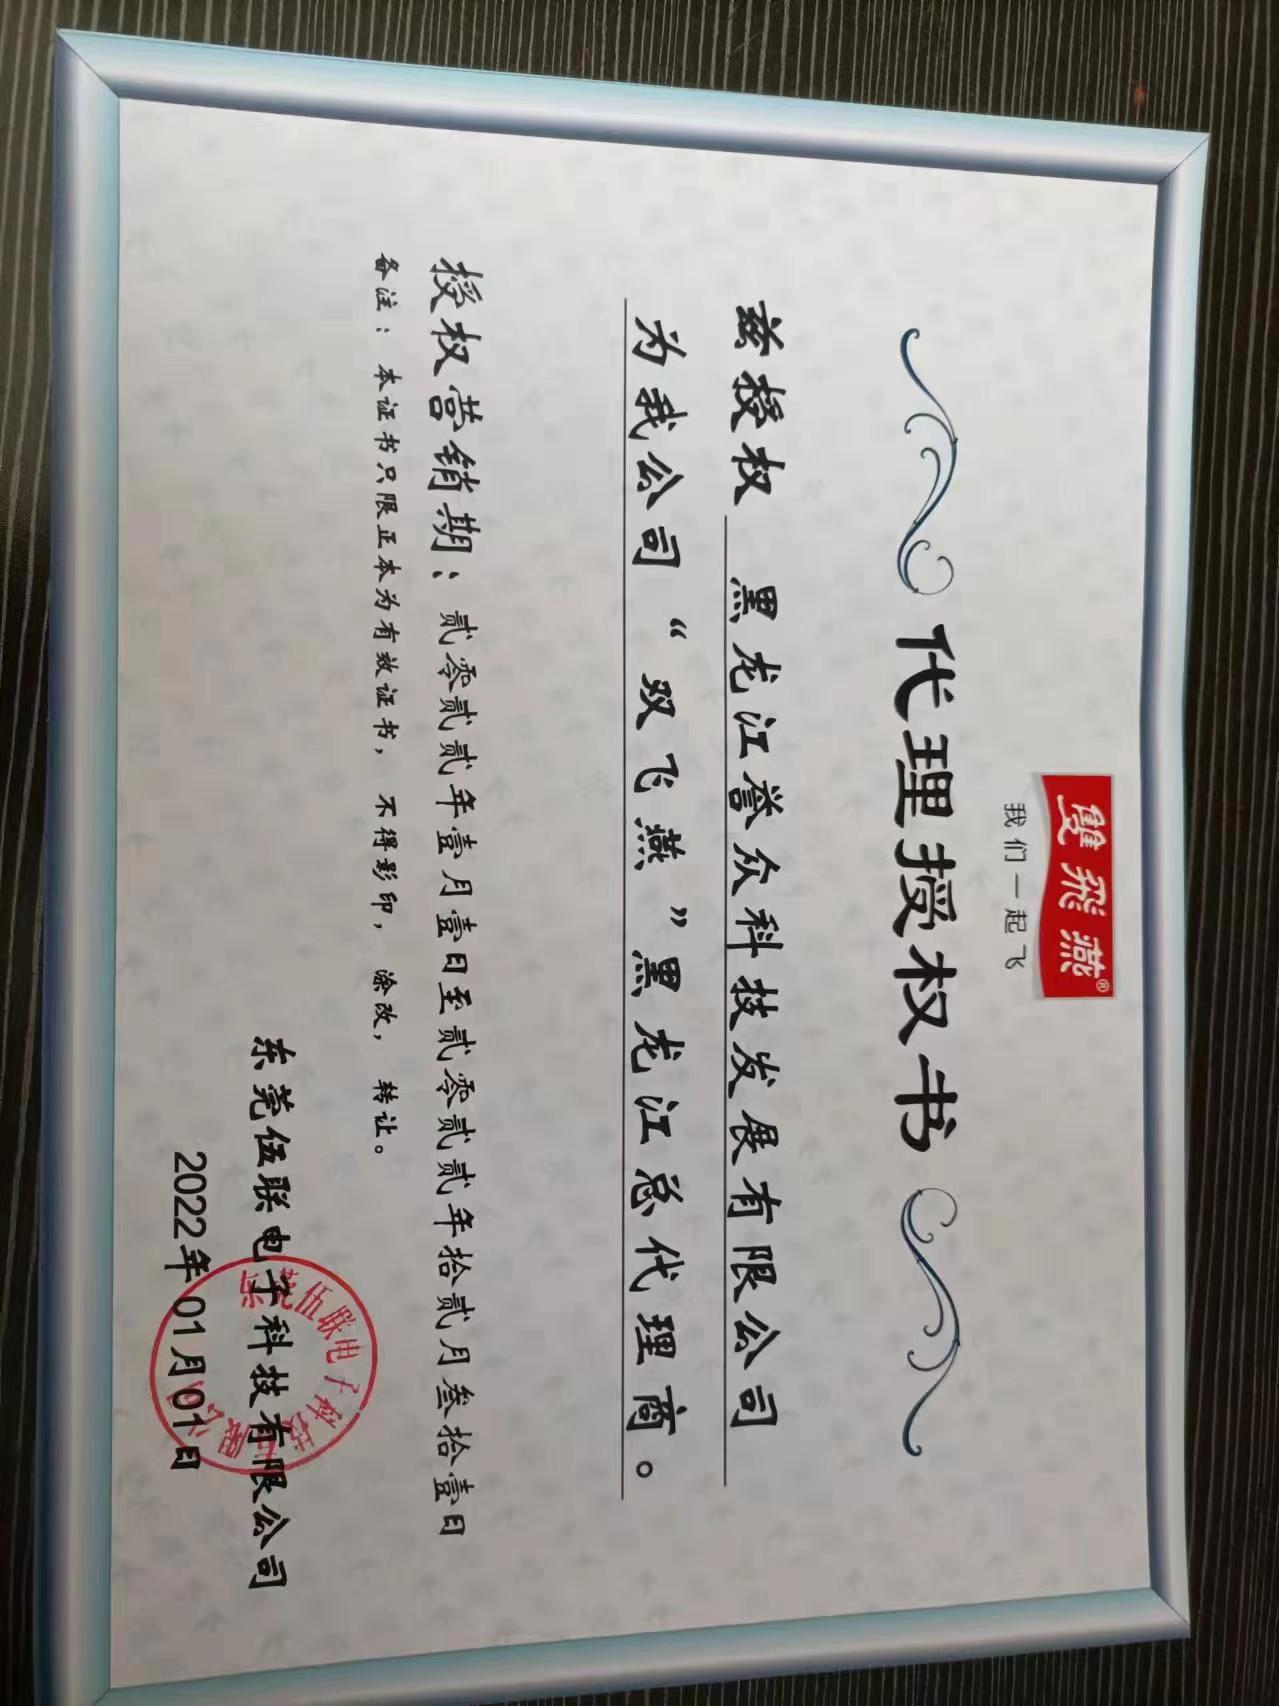 雙飛燕®
我们一起飞
代理授权书
兹授权 黑龙江誉众科技发展有限公司
为我公司“双飞燕”黑龙江总代理商。
授权营销期：贰零贰贰年壹月壹日至贰零贰贰年拾贰月叁拾壹日
备注：本证书只限正本为有效证书，不得影印，涂改，转让。
东莞伍联电子科技有限公司
2022年01月01日
东莞伍联电子科技有限公司